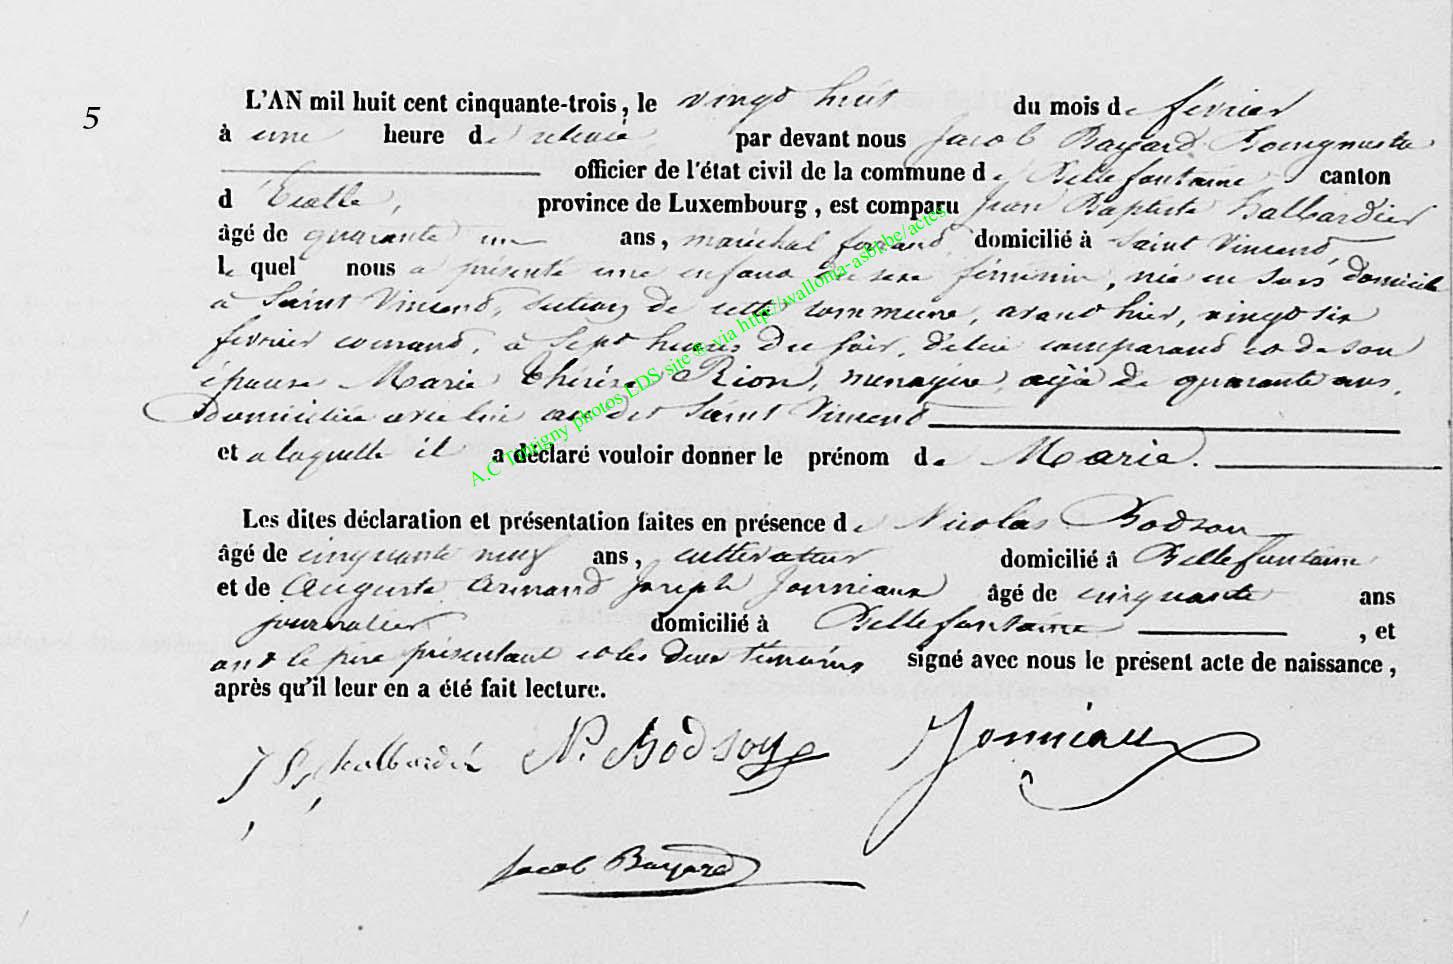 5
L'AN mil huit cent cinquante-trois, le vingt huit du mois de fevrier
à une heure de relevée par devant nous Jacob Bayard Bourgmestre
officier de l'état civil de la commune de Bellefontaine canton
d'Etalle, province de Luxembourg, est comparu Jean Baptiste Halbardier
âgé de quarante un ans, maréchal ferrant, domicilié à Saint Vincent,
le quel nous a présenté une enfant du sexe féminin, née en son domicile
à Saint Vincent, section de cette commune, avant hier, vingt six
fevrier courant, à sept heures du soir, de lui comparant et de son
épouse Marie Thérèse Rion, menagère, agée de quarante ans,
domiciliée avec lui au dit Saint Vincent
et a laquelle il a déclaré vouloir donner le prénom de Marie.
Les dites déclaration et présentation faites en présence de Nicolas Bodson
âgé de cinquante neuf ans, cultivateur domicilié à Bellefontaine
et de Auguste Armand Joseph Jonniaux âgé de cinquante ans
journalier domicilié à Bellefontaine, et
ont le père présentant et les deux témoins signé avec nous le présent acte de naissance,
après qu'il leur en a été fait lecture.
J B halbardié N. Bodson Jonniaux
Jacob Bayard
A.C Tintigny photos LDS site & via http://wallonia-asbl.be/actes